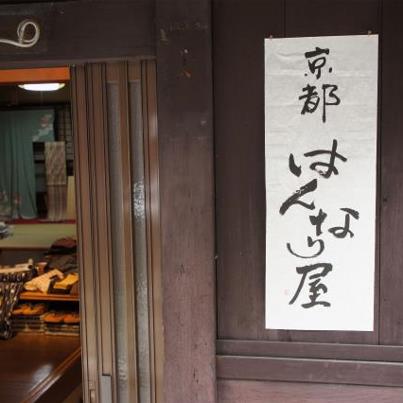 京都
はんなり屋